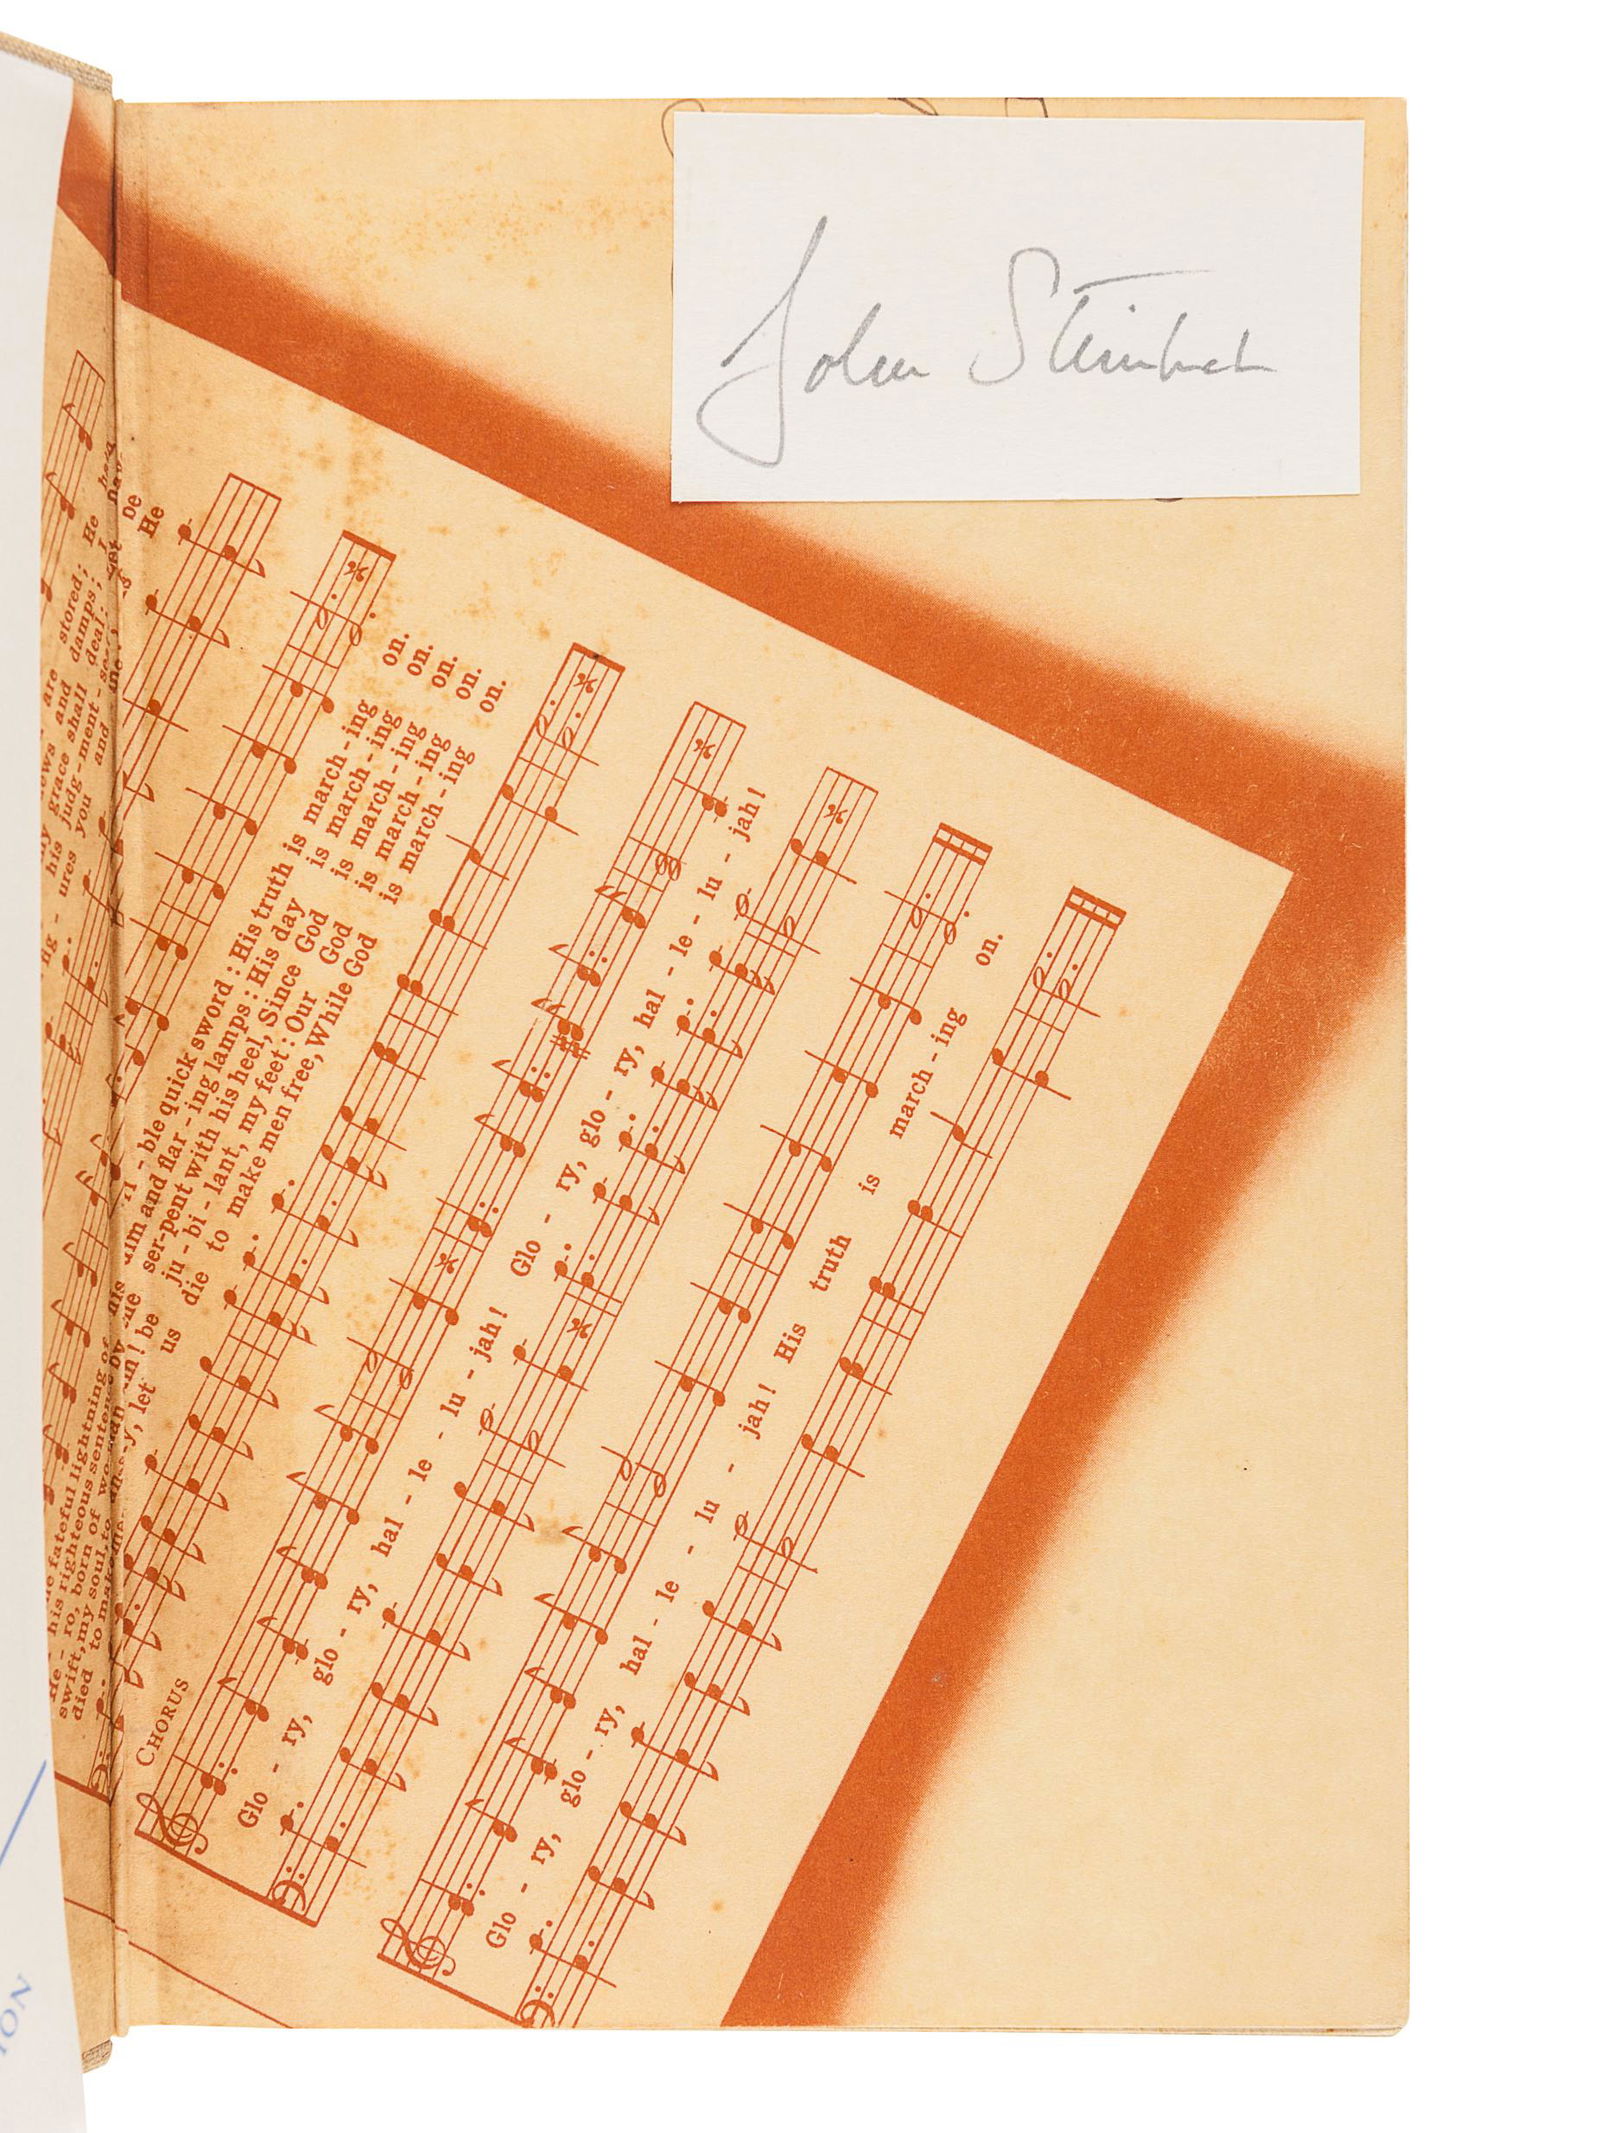 John Steinbeck
are stored; He
news and damps; I
grace shall deal;
his judg - ment - seat
ures you and
De
He
fateful lightning of
his righteous sentence by
ro, born of
swift, my soul, to
died to make
ble quick sword : His truth is march - ing on.
dim and flar - ing lamps : His day is march - ing on.
ser-pent with his heel, Since God is march - ing on.
be ju - bi - lant, my feet : Our God is march - ing on.
let us die to make men free, While God is march - ing on.
CHORUS
Glo - ry, glo - ry, hal - le - lu - jah! Glo - ry, glo - ry, hal - le - lu - jah!
Glo - ry, glo - ry, hal - le - lu - jah! His truth is march - ing on.
ION